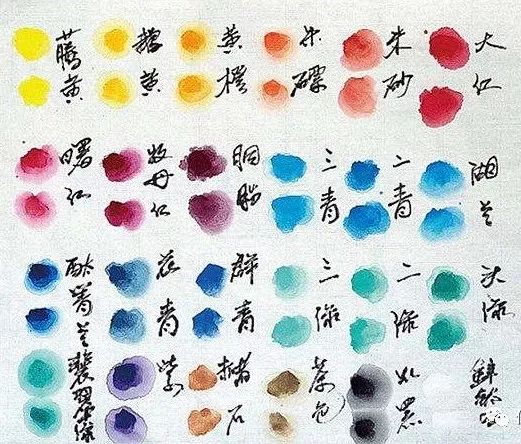 藤黄
黄橙
朱磦
朱砂
大红
曙红
牡丹红
胭脂
三青
二青
湖兰
酞菁兰
花青
群青
三绿
二绿
头绿
翠绿
紫
赭石
茶色
黑